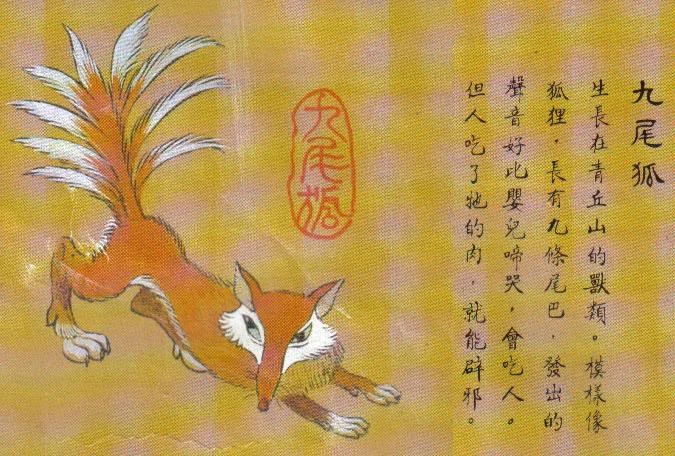 九尾狐
生長在青丘山的獸類。模樣像
狐狸,長有九條尾巴,發出的
聲音好比嬰兒啼哭,會吃人。
但人吃了牠的肉,就能辟邪。
九尾狐